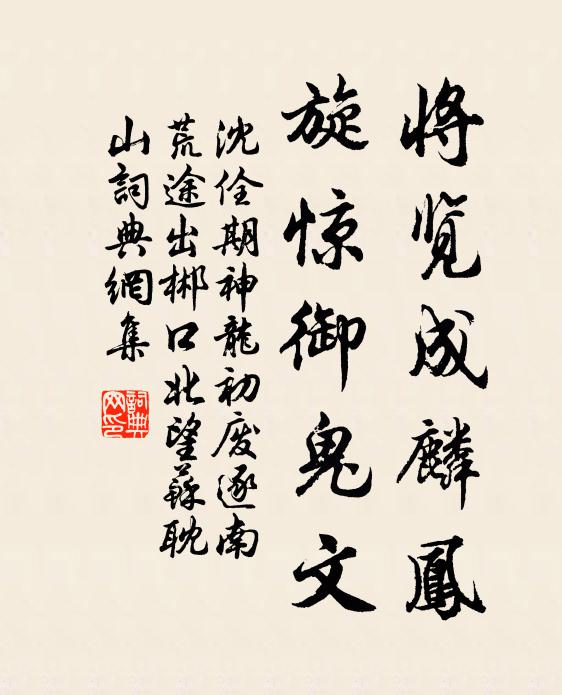 将览成麟鳳
旋惊御鬼文
沈佺期神龍初廢逐南
荒途出郴口北望蘇耽
山詞典網集
詞典网印